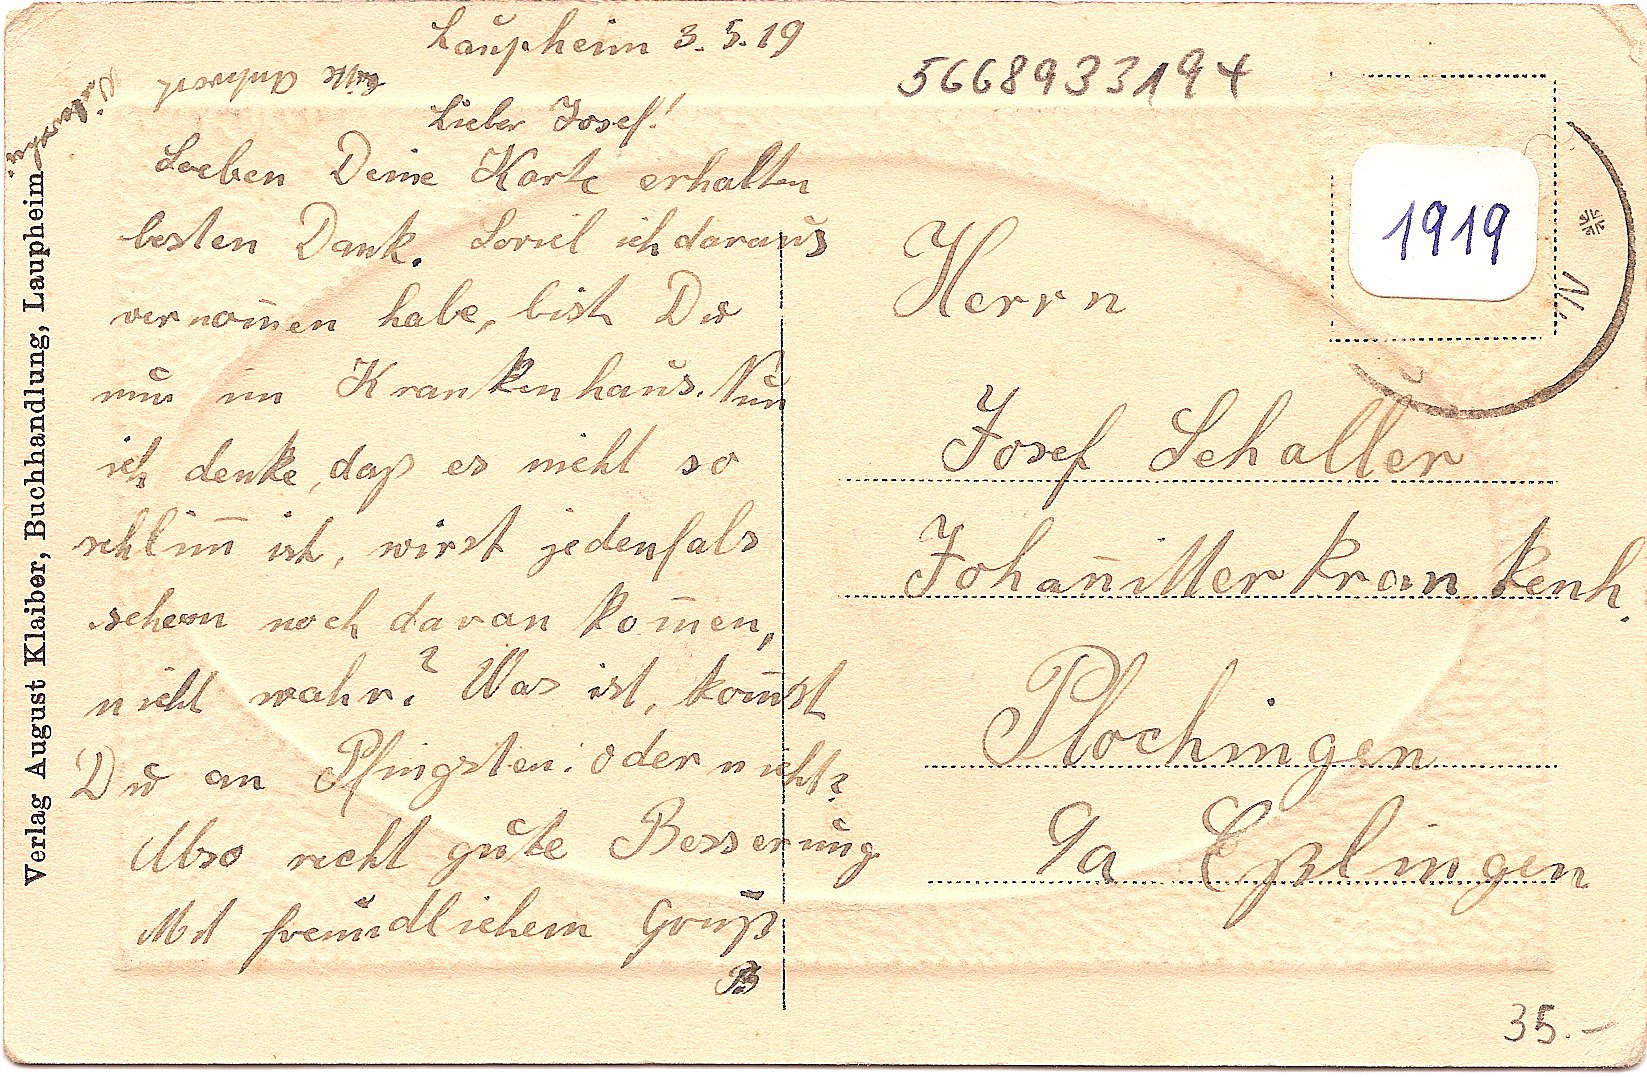 Laupheim 3. 5. 19
Lieber Josef!
Soeben Deine Karte erhalten
besten Dank. Soviel ich daraus
vernom̄en habe, bist Du
nun im Krankenhaus. Nun
ich denke, daß es nicht so
schlim̄ ist, wirst jedenfals
schon noch daran kom̄en,
nicht wahr? Was ist, kom̄st
Du an Pfingsten: oder nicht?
Also recht gute Besserung
Mit freundlichem Gruß
Bitte Antwort
Verlag August Klaiber, Buchhandlung, Laupheim
5668933194
1919
Herrn
Josef Schaller
Johan̄itterkrankenh.
Plochingen
Oa Eßlingen
35.-